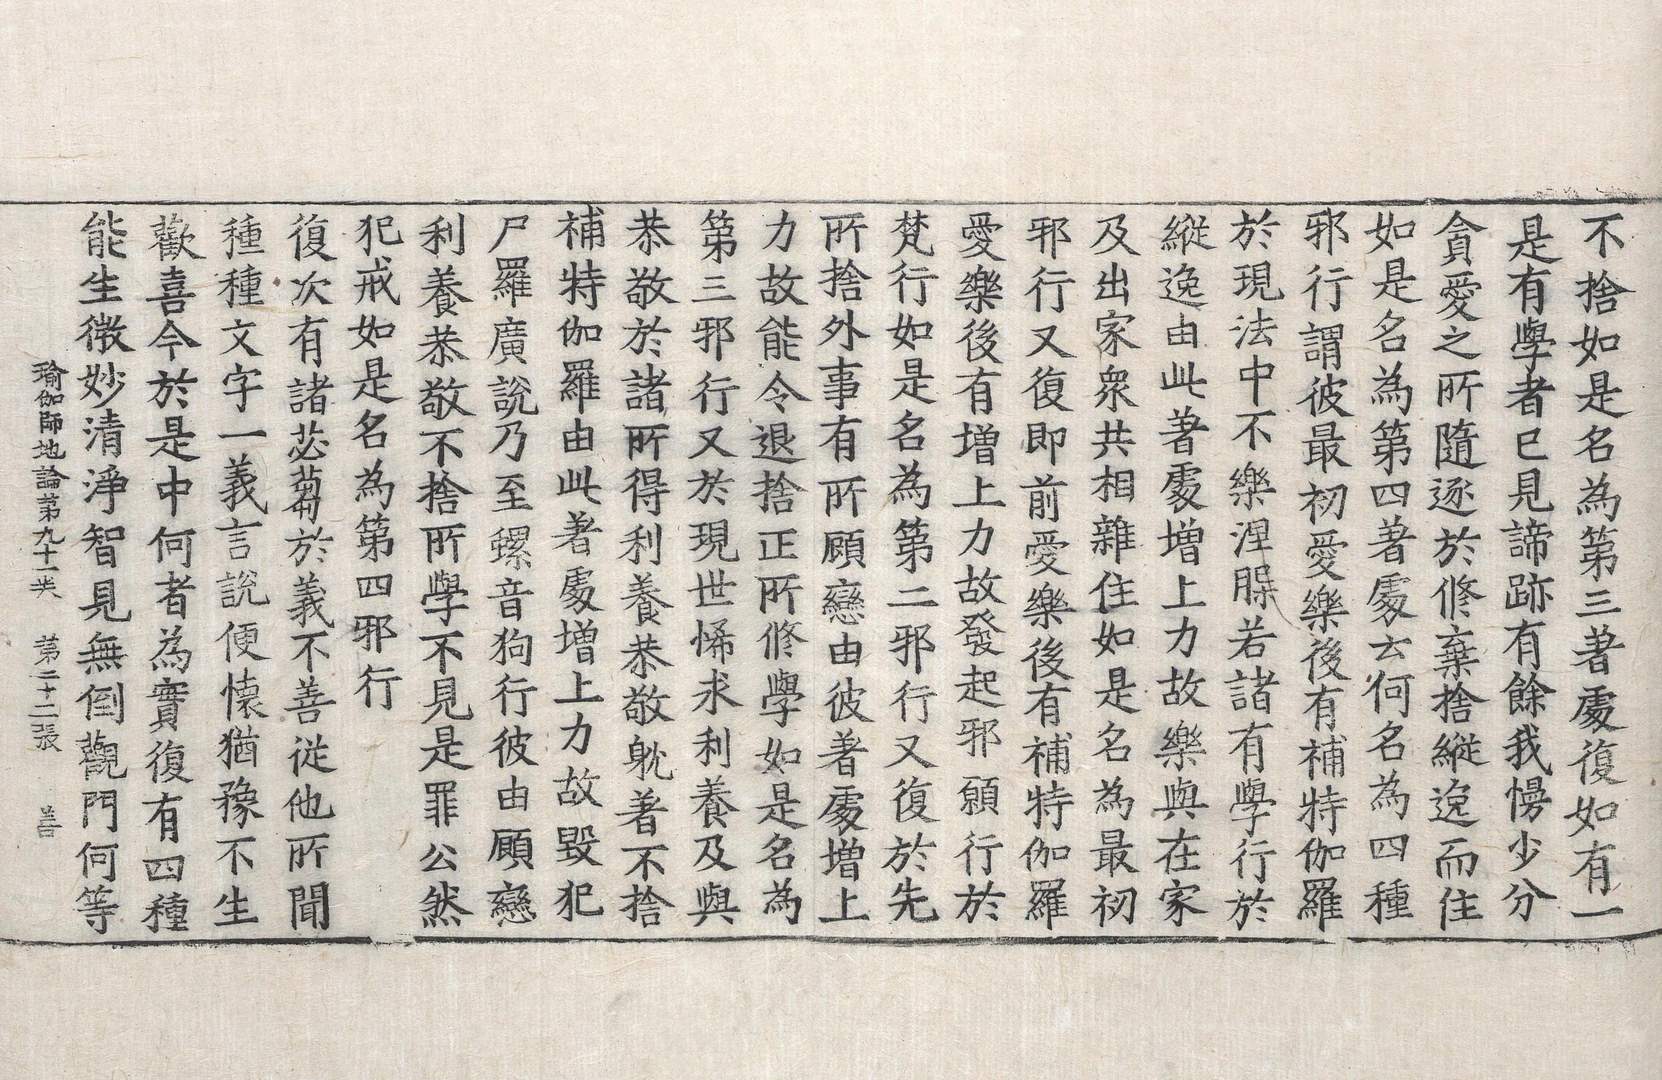 不捨如是名為第三著處復如有一
是有學者已見諦跡有餘我慢少分
貪愛之所隨逐於修棄捨縱逸而住
如是名為第四著處云何名為四種
邪行謂彼最初愛樂後有補特伽羅
於現法中不樂涅槃若諸有學行於
縱逸由此著處增上力故樂與在家
及出家眾共相雜住如是名為最初
邪行又復即前愛樂後有補特伽羅
愛樂後有增上力故發起邪願行於
梵行如是名為第二邪行又復於先
所捨外事有所顧戀由彼著處增上
力故能令退捨正所修學如是名為
第三邪行又於現世悕求利養及與
恭敬於諸所得利養恭敬躭著不捨
補特伽羅由此著處增上力故毀犯
尸羅廣說乃至螺音狗行彼由顧戀
利養恭敬不捨所學不見是罪公然
犯戒如是名為第四邪行
復次有諸苾蒭於義不善從他所聞
種種文字一義言說便懷猶豫不生
歡喜今於是中何者為實復有四種
能生微妙清淨智見無倒觀門何等
瑜伽師地論第九十一 第二十二張